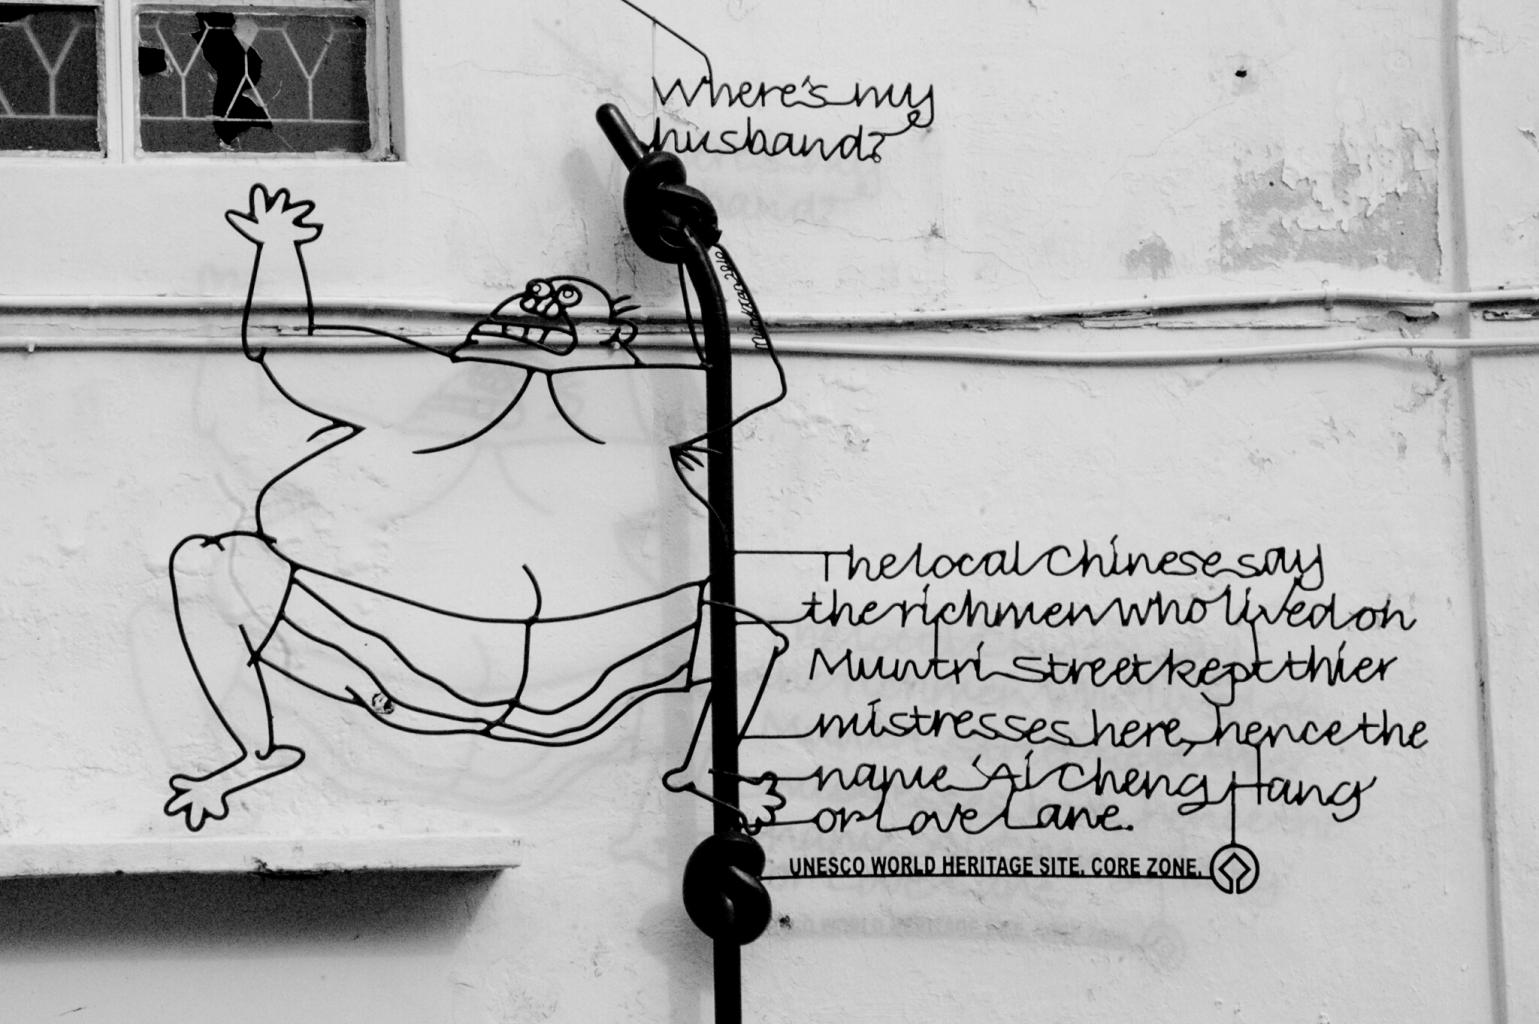 Where's my
husband?
The local Chinese say
the rich men who lived on
Muntri Street kept thier
mistresses here, hence the
name 'Ai Cheng Hang'
or Love Lane.
UNESCO WORLD HERITAGE SITE. CORE ZONE.